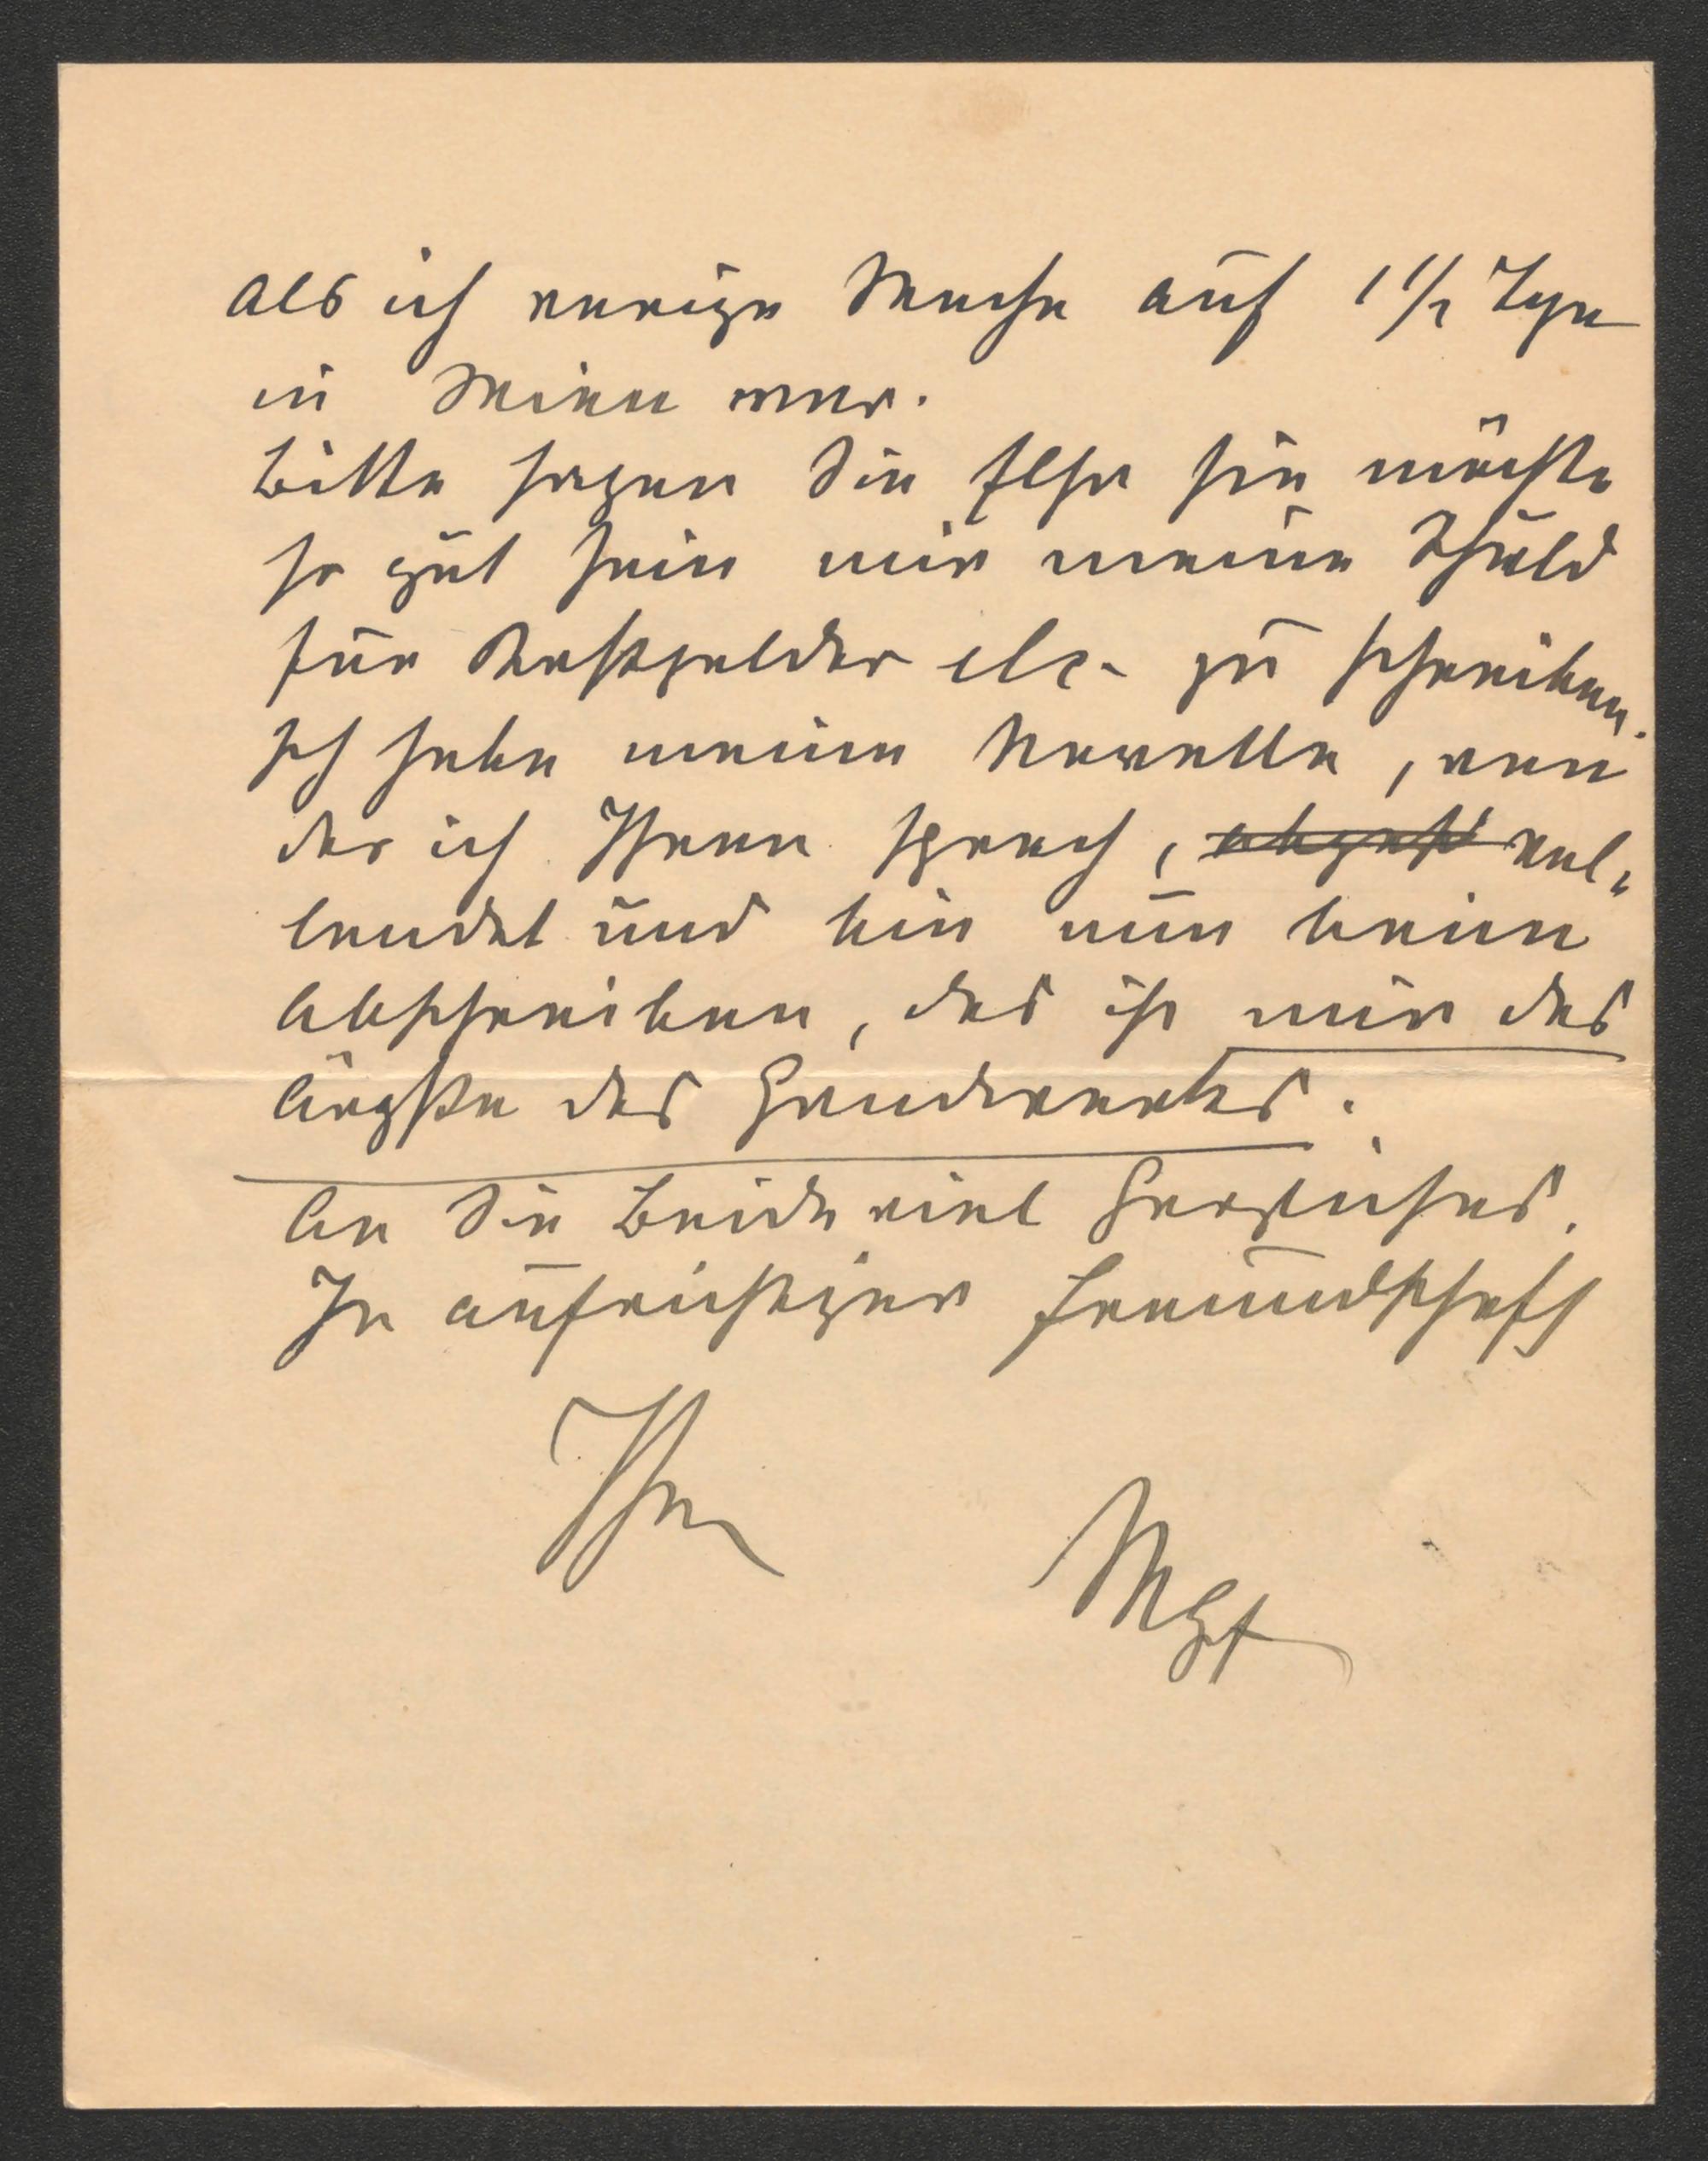 als ich vorige Woche auf 1 1/2 Tage
in Wien war.
Bitte sagen Sie Ilse sie möchte
so gut sein mir meine Schuld
für Postgelder etc. zu schreiben.
Ich habe meine Novelle, von
der ich Ihnen sprach, vol„
lendet und bin nun beim
Abschreiben, das ist mir das
Ärgste des Handwerks.
An Sie Beide viel Herzliches.
In aufrichtiger Freundschaft
Ihr